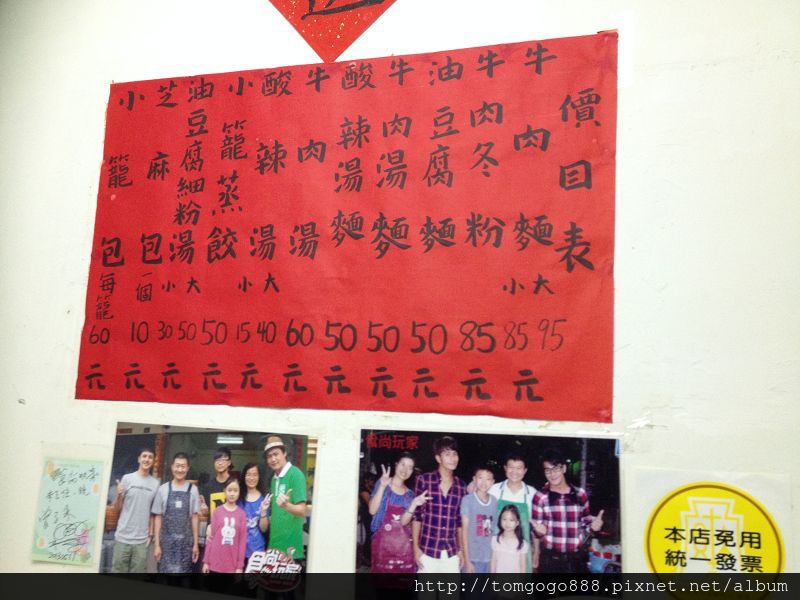 價目表
牛肉麵 小 大 85 95 元
牛肉冬粉 85 元
油豆腐麵 50 元
牛肉湯麵 50 元
酸辣湯麵 50 元
牛肉湯 60 元
酸辣湯 小 大 15 40 元
小籠蒸餃 50 元
油豆腐細粉湯 小 大 30 50 元
芝麻包 一個 10 元
小籠包 每籠 60 元
食尚玩家
食尚玩家
本店免用
統一發票
http://tomgogo888.pixnet.net/album